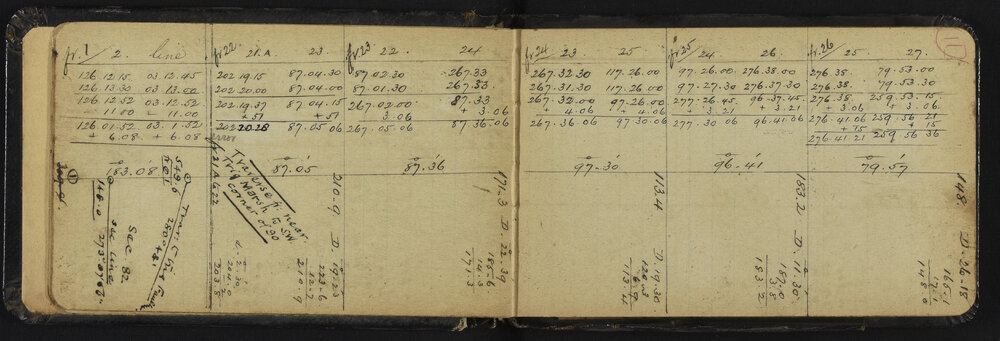 fr. 1 2 line
126.12.15 03.12.45
126.13.30 03.13.00
126.12.52 03.12.52
- 11.00 - 11.00
126.01.52 03.1.52
+ 6.08 + 6.08
183.08
Sec. 82
Sec line
148.0
fr 22 21.A. 23.
202.19.15 87.04.30
202.20.00 87.04.00
202.19.37 87.04.15
+ 51 + 51
202.20.28 87.05.06
error
87.05
fr 21A to 22
Traverse fr. near
Trig Marsh to SW
corner of 90
203.8
210.9 D. 19.23
210.9
fr 23 22. 24
87.02.30 267.33
87.01.30 267.33
267.02.00 87.33
3.06 + 3.06
267.05.06 87.36.06
87.36
171.3 D. 22.39
171.3
fr 24 23 25
267.32.30 117.26.00
267.31.30 117.26.00
267.32.00 97.26.00
+ 4.06 4.06
267.36.06 97.30.06
97.30
113.4 D. 19.30
120.3
6.9
113.4
fr 25 24 26
97.26.00 276.38.00
97.27.30 276.37.30
277.26.45 96.37.45
+ 3.21 + 3.21
277.30.06 96.41.06
96.41
183.2 D. 11.30
187.0
3.8
183.2
fr. 26 25 27.
276.38. 79.53.00
276.38. 79.53.30
276.38. 259.53.15
+ 3.06 + 3.06.
276.41.06 259.56 21
+ 15 + 15
276.41.21 259.56 36
79.57
148.0 D. 26.18
165.1
17.1
148.0
11